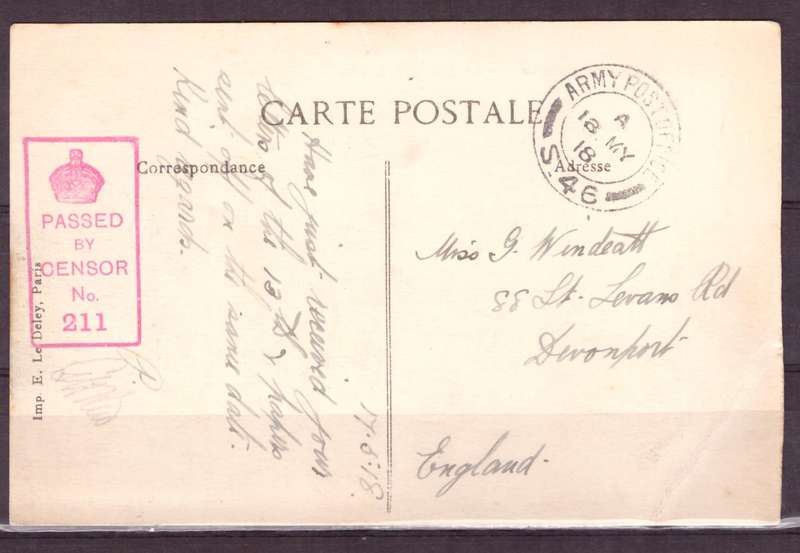 CARTE POSTALE
Correspondance
Adresse
ARMY POST OFFICE
A
18 MY
18
S. 46
PASSED
BY
CENSOR
No.
211
Imp. E. Le Deley, Paris
17.5.18.
Have just received your
letter of the 13th & papers
sent off on the same date.
Kind regards.
Miss G. Windeatt
88 St. Levans Rd
Devonport
England.